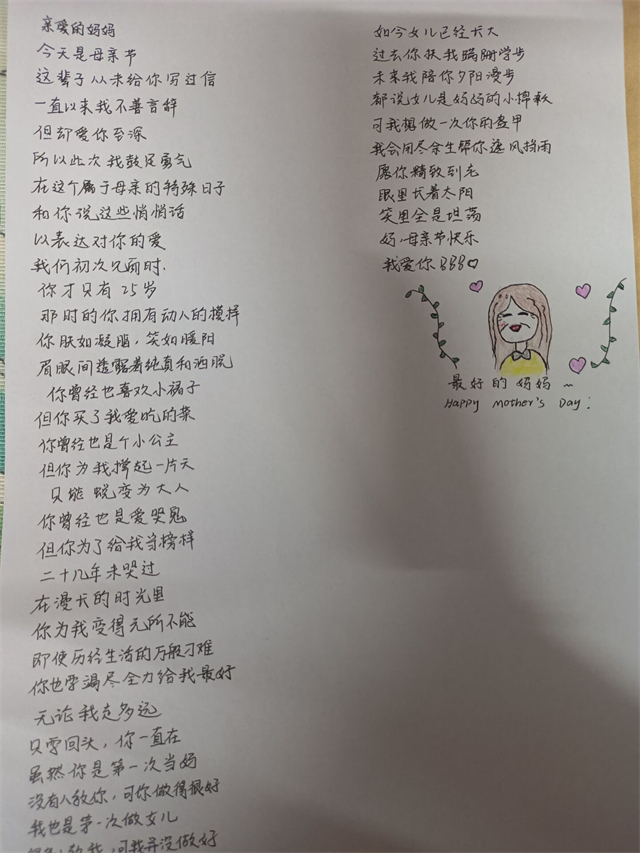 亲爱的妈妈
今天是母亲节
这辈子从未给你写过信
一直以来我不善言辞
但却爱你至深
所以此次我鼓足勇气
在这个属于母亲的特殊日子
和你说这些悄悄话
以表达对你的爱
我们初次见面时.
你才只有25岁
那时的你拥有动人的摸样
你肤如凝脂，笑如暖阳
眉眼间透露着纯真和洒脱
你曾经也喜欢小裙子
但你买了我爱吃的菜
你曾经也是个小公主
但你为我撑起一片天
只能蜕变为大人
你曾经也是爱哭鬼
但你为了给我当榜样
二十几年未哭过
在漫长的时光里
你为我变得无所不能
即使历经生活的万般刁难
你也要竭尽全力给我最好
无论我走多远
只要回头，你一直在
虽然你是第一次当妈
没有人教你，可你做得很好
我也是第一次做女儿
教我，可我并没做好
如今女儿已经长大
过去你扶我蹒跚学步
未来我陪你夕阳漫步
都说女儿是妈妈的小棉袄
可我想做一次你的盔甲
我会用尽余生帮你遮风挡雨
愿你精致到老
眼里长着太阳
笑里全是坦荡
妈,母亲节快乐
我爱你
最好的妈妈~
Happy Mother's Day!